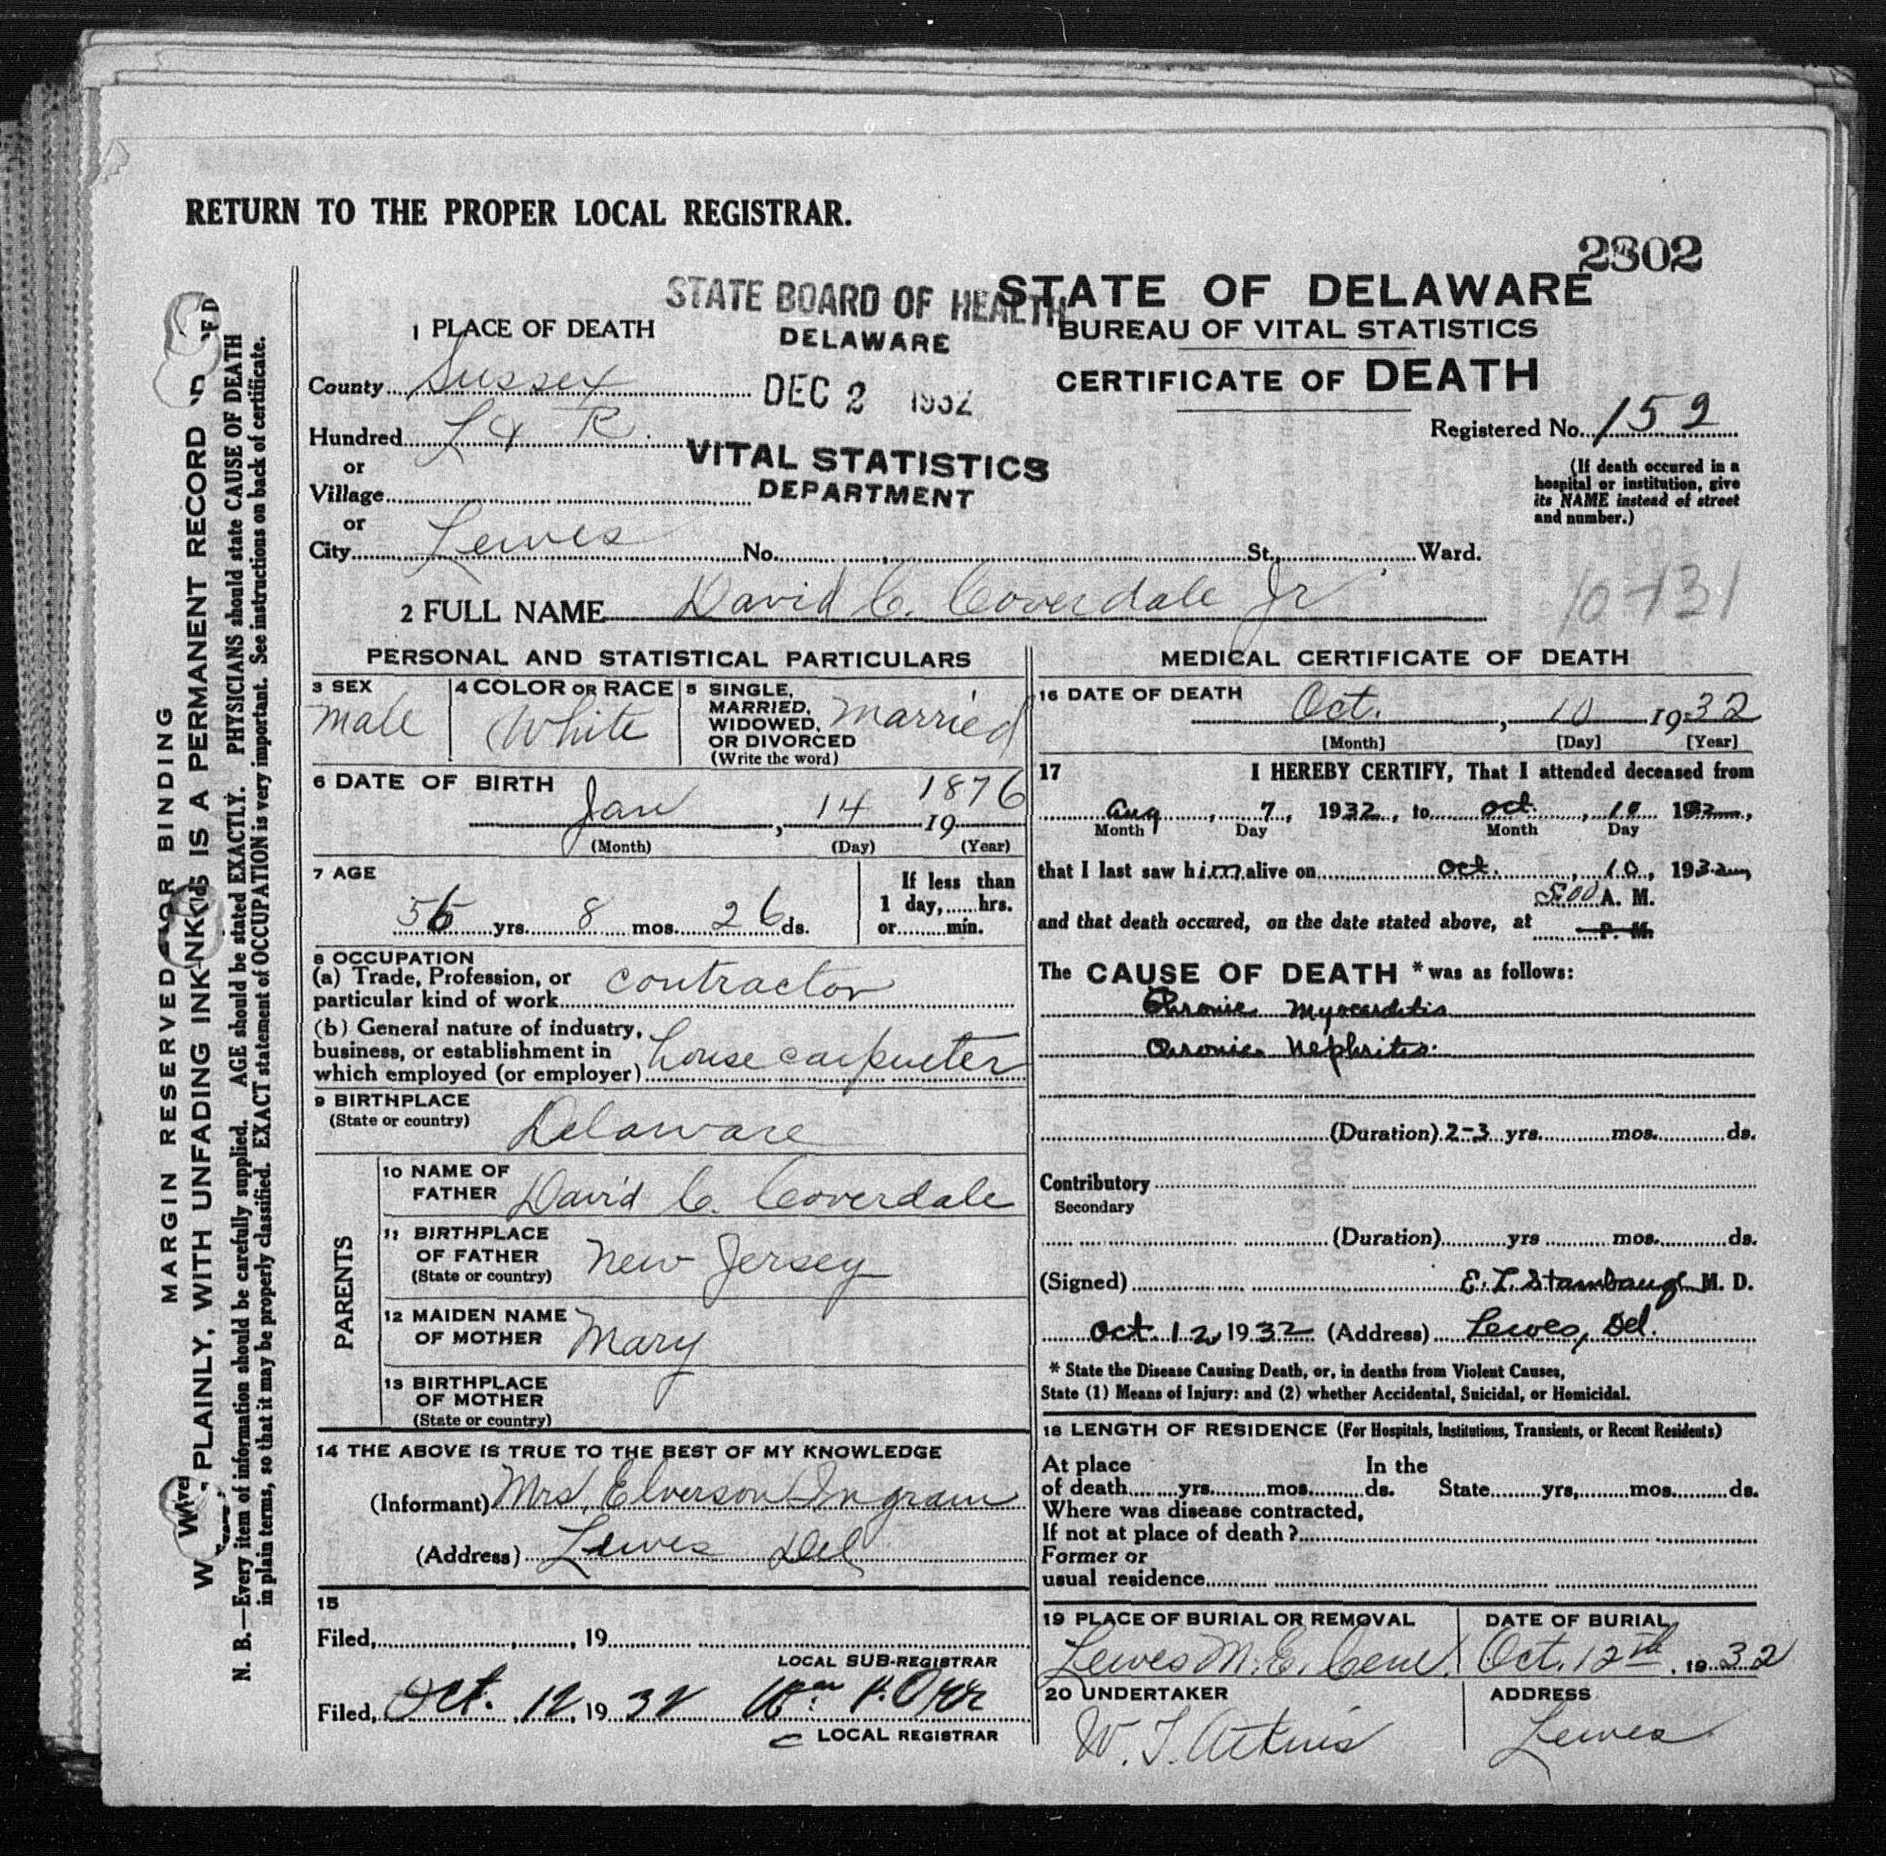 RETURN TO THE PROPER LOCAL REGISTRAR.
2302
STATE BOARD OF HEALTH
DELAWARE
DEC 2 1932
VITAL STATISTICS
DEPARTMENT
STATE OF DELAWARE
BUREAU OF VITAL STATISTICS
CERTIFICATE OF DEATH
Registered No. 152
(If death occured in a
hospital or institution, give
its NAME instead of street
and number.)
1 PLACE OF DEATH
County Sussex
Hundred L & R.
or
Village
or
City Lewes No. , St. Ward.
2 FULL NAME David C. Coverdale Jr
10-131
PERSONAL AND STATISTICAL PARTICULARS
3 SEX
male
4 COLOR OR RACE
White
5 SINGLE,
MARRIED,
WIDOWED,
OR DIVORCED
(Write the word)
married
6 DATE OF BIRTH
Jan , 14 19 1876
(Month) (Day) (Year)
7 AGE
56 yrs. 8 mos. 26 ds.
If less than
1 day, hrs.
or min.
8 OCCUPATION
(a) Trade, Profession, or
particular kind of work contractor
(b) General nature of industry,
business, or establishment in
which employed (or employer) house carpenter
9 BIRTHPLACE
(State or country) Delaware
PARENTS
10 NAME OF
FATHER David C. Coverdale
11 BIRTHPLACE
OF FATHER
(State or country) New Jersey
12 MAIDEN NAME
OF MOTHER Mary
13 BIRTHPLACE
OF MOTHER
(State or country)
14 THE ABOVE IS TRUE TO THE BEST OF MY KNOWLEDGE
(Informant) Mrs. Elverson Ingram
(Address) Lewes Del
15
Filed, , 19
LOCAL SUB-REGISTRAR
Filed, Oct. 12, 19 32 Wm P. Orr
LOCAL REGISTRAR
MEDICAL CERTIFICATE OF DEATH
16 DATE OF DEATH Oct. , 10 1932
[Month] [Day] [Year]
17 I HEREBY CERTIFY, That I attended deceased from
Aug , 7, 1932, to Oct. , 10 1932,
Month Day Month Day
that I last saw him alive on Oct. , 10, 1932,
and that death occured, on the date stated above, at 5:00 A. M.
P. M.
The CAUSE OF DEATH * was as follows:
Chronic Myocarditis
Chronic Nephritis.
(Duration) 2-3 yrs. mos. ds.
Contributory
Secondary
(Duration) yrs mos. ds.
(Signed) E. L. Stambaugh M. D.
Oct. 12, 1932 (Address) Lewes, Del.
* State the Disease Causing Death, or, in deaths from Violent Causes,
State (1) Means of Injury: and (2) whether Accidental, Suicidal, or Homicidal.
18 LENGTH OF RESIDENCE (For Hospitals, Institutions, Transients, or Recent Residents)
At place In the
of death yrs. mos. ds. State yrs, mos. ds.
Where was disease contracted,
If not at place of death ?
Former or
usual residence
19 PLACE OF BURIAL OR REMOVAL
Lewes M. E. Cem.
DATE OF BURIAL
Oct. 12th, 1932
20 UNDERTAKER
W. T. Atkins
ADDRESS
Lewes
MARGIN RESERVED FOR BINDING
PLAINLY, WITH UNFADING INK IS A PERMANENT RECORD
N. B.—Every item of information should be carefully supplied. AGE should be stated EXACTLY. PHYSICIANS should state CAUSE OF DEATH
in plain terms, so that it may be properly classified. EXACT statement of OCCUPATION is very important. See instructions on back of certificate.